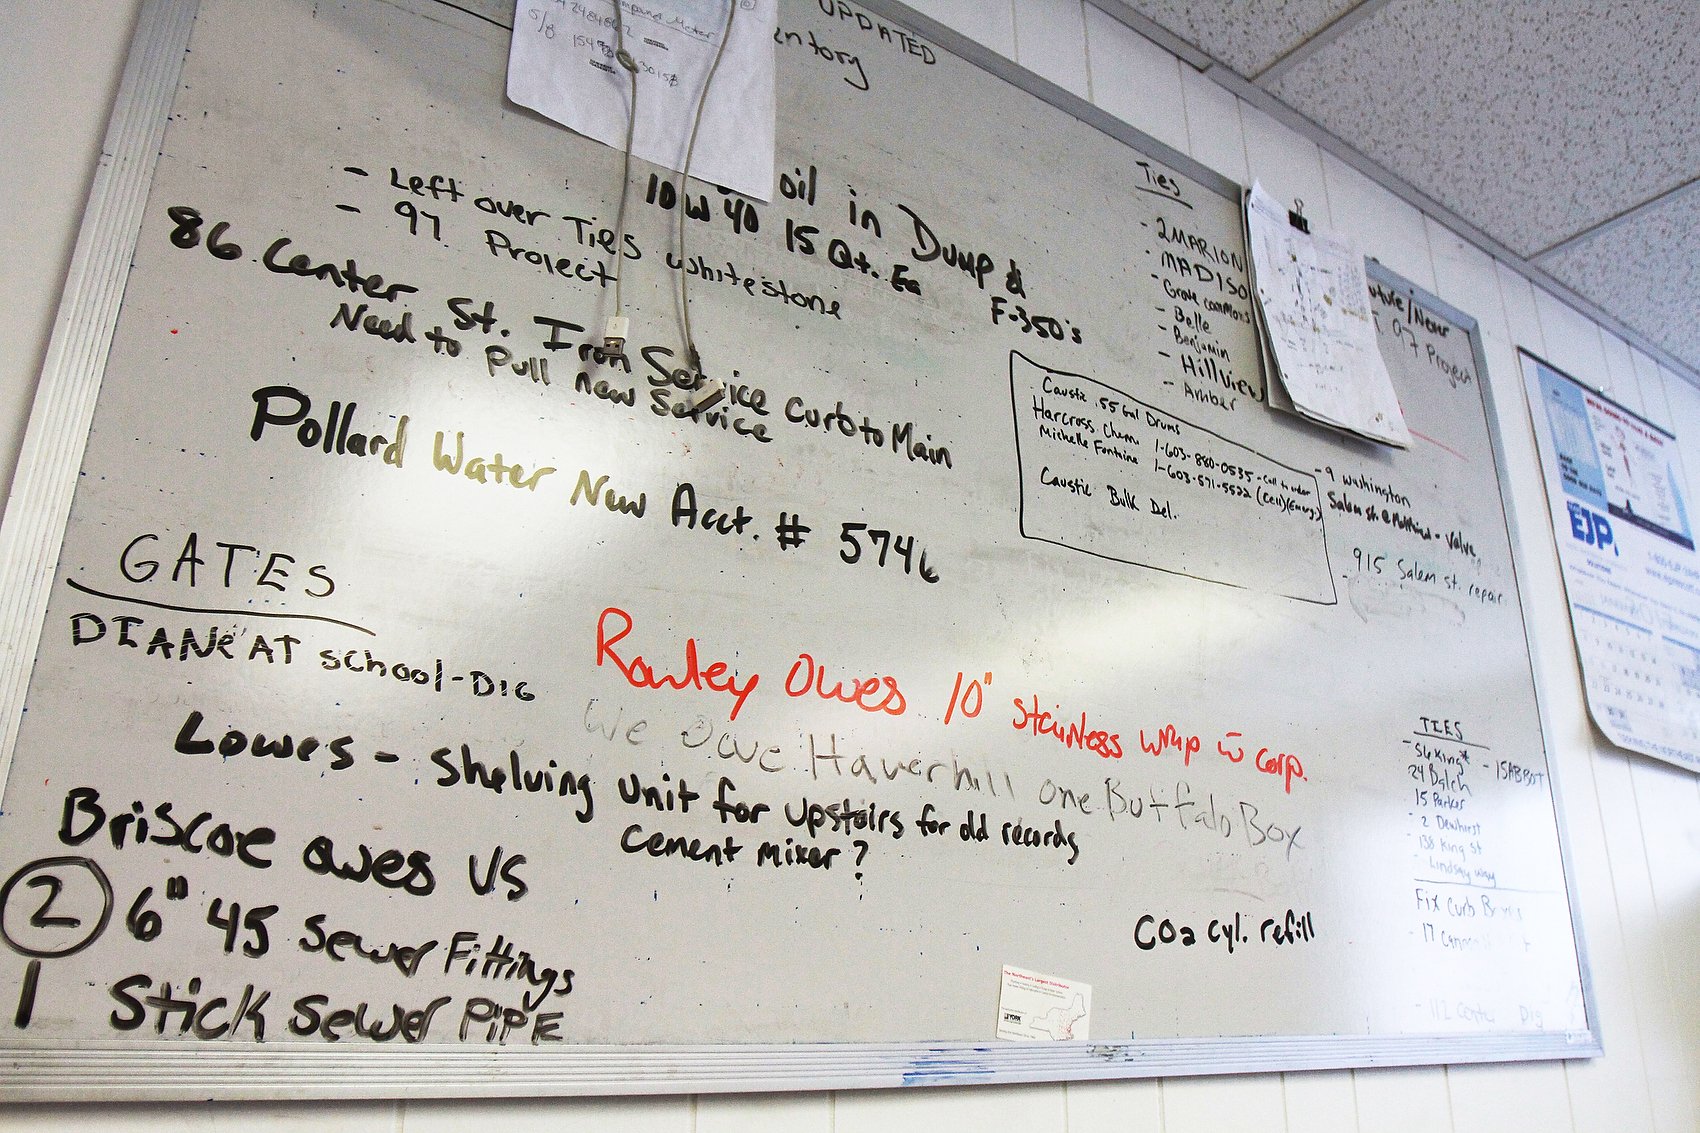 UPDATED
oil in Dump &
F-350's
10W40 15 Qt. Ea
- Left over Ties whitestone
- 97 Project
86 Center St. Iron Service Curb to Main
Need to Pull new Service
Pollard Water New Acct. # 5746
GATES
DIANE AT school-DIG
Rowley Owes 10" Stainless wrap
We Owe Haverhill one Buffalo Box
Lowes - Shelving unit for upstairs for old records
cement mixer?
Briscoe owes us
2 6" 45 Sewer Fittings
1 Stick Sewer PIPE
CO2 cyl. refill
Ties
- 2 MARION
- MADISO
- Grove commons
- Belle
- Benjamin
- Hillview
- Amber
Future/Never
97 Project
Caustic .55 Gal Drums
Harcross Chem 1-603-880-0535 - Call to order
Michelle Fontine 1-603-571-5522 (cell)(Emerg)
Caustic Bulk Del.
- 9 Washington
- Valve
915 Salem St. repair
TIES
- 56 King* - 15 ABBOT
24 Balch
15 Parker
- 2 Dewhirst
- 138 King St
- Lindsay Way
Fix Curb Boxes
- 17
- 112 Dig
The Northeast's Largest Distributor
EJP